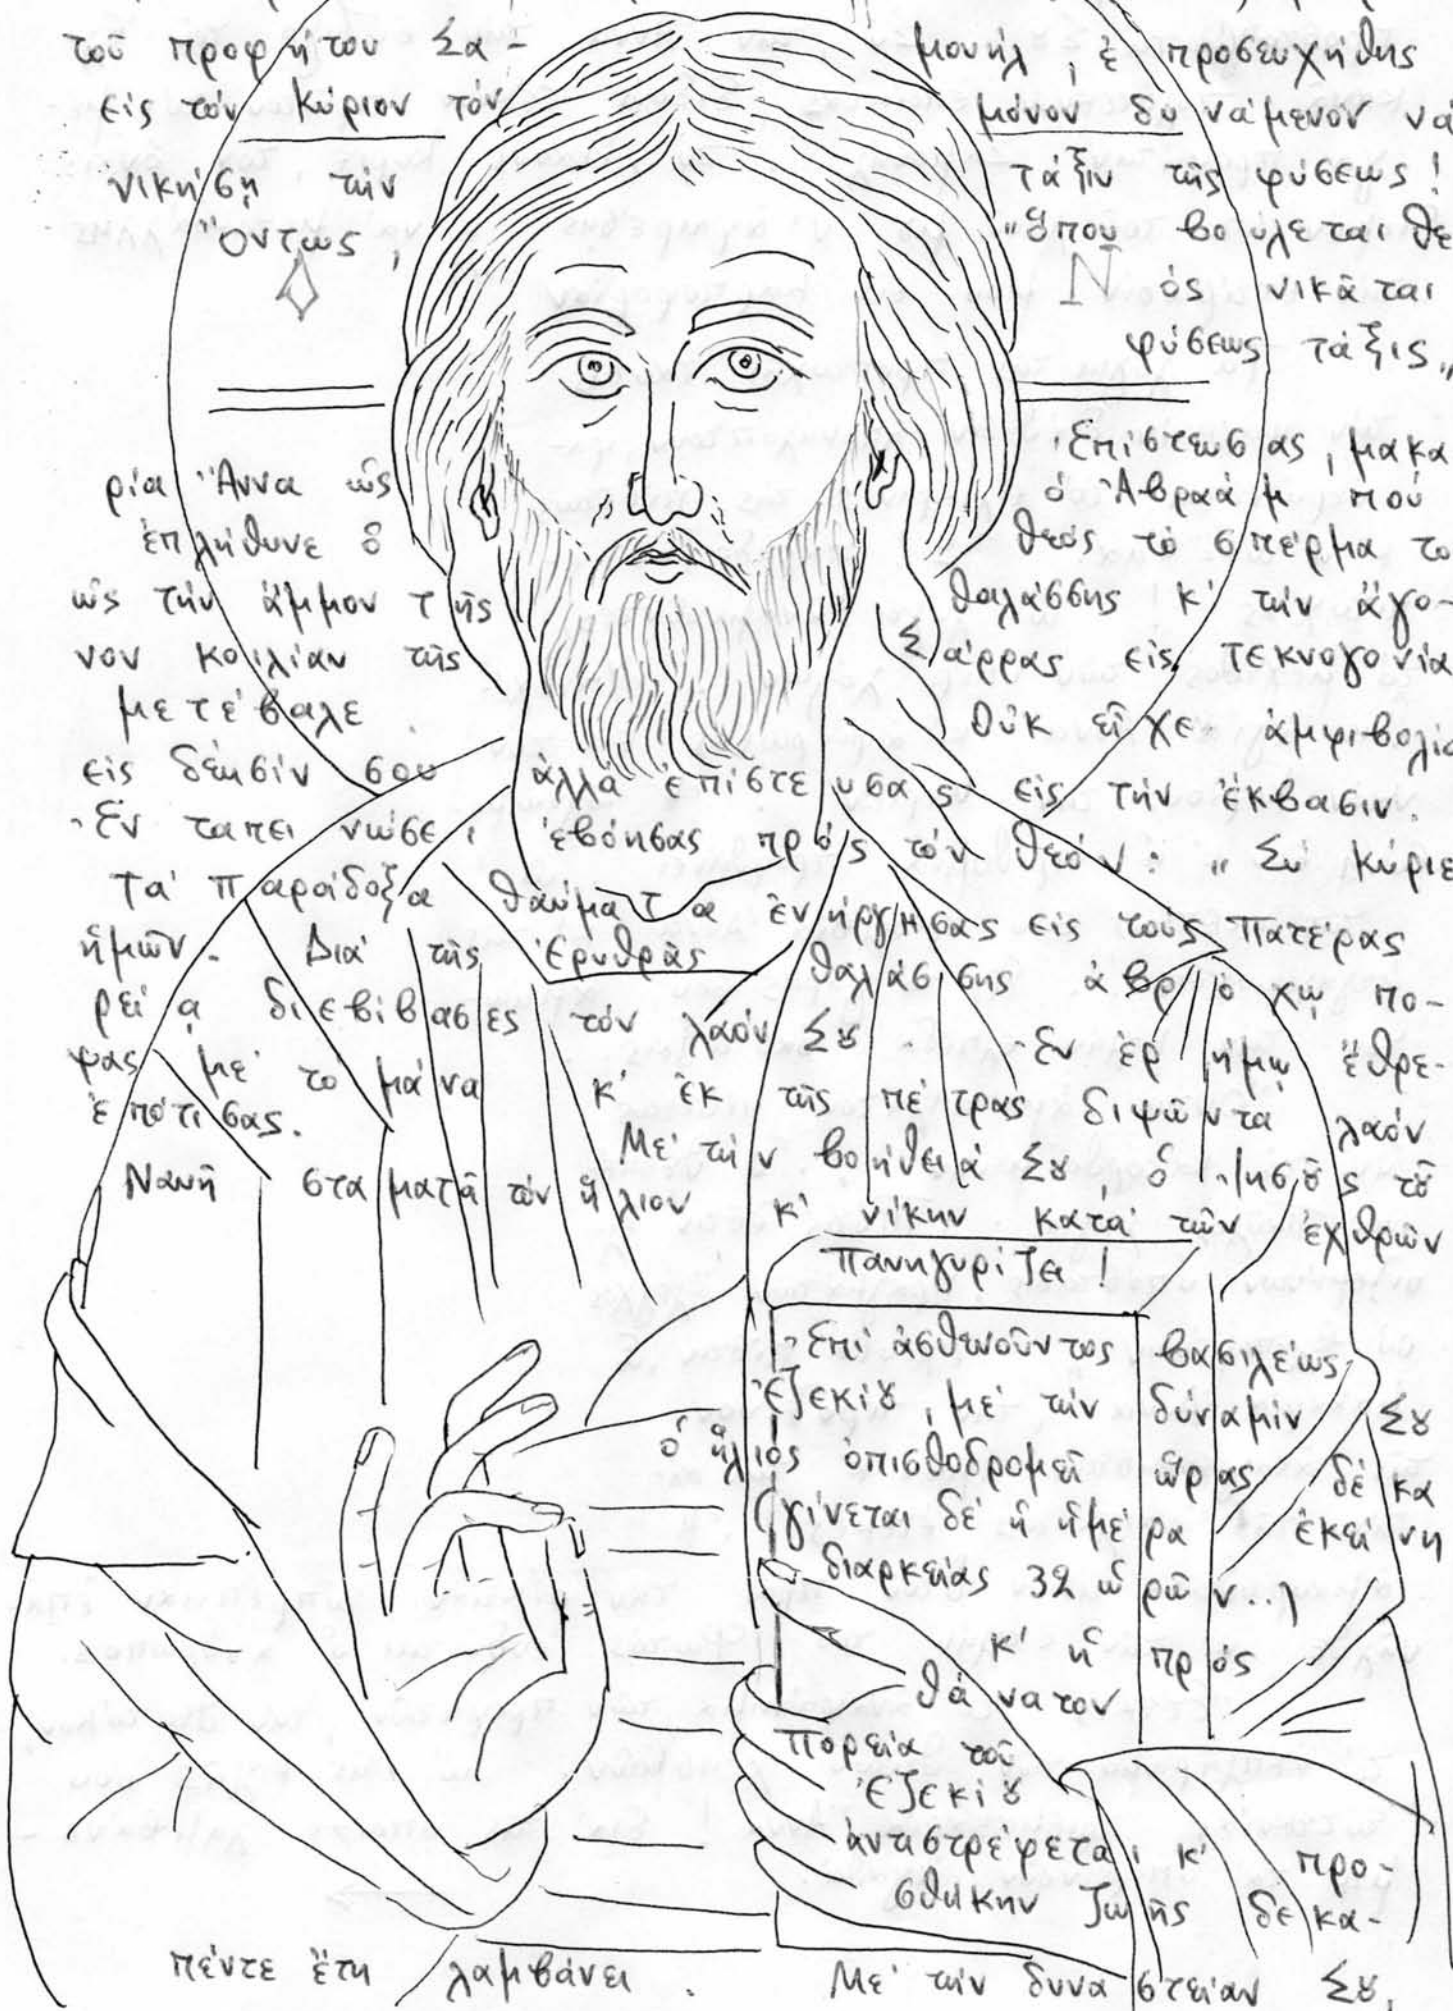 τοῦ προφήτου Σαμουήλ, ἐπροσευχήθης
εἰς τόν Κύριον τόν μόνον δυνάμενον νά
νικήσῃ τήν τάξιν τῆς φύσεως!
Ὄντως, "ὅπου βούλεται Θε
Ὁ Ν ός νικᾶται
φύσεως τάξις"
Ἐπίστευσας, μακα
ρία Ἄννα ὡς ὁ Ἀβραάμ πού
ἐπλήθυνε ὁ Θεός τό σπέρμα το
ὡς τήν ἄμμον τῆς θαλάσσης κ' τήν ἄγο-
νον κοιλίαν τῆς Σάρρας εἰς τεκνογονία
μετέβαλε. Οὐκ εἶχε ἀμφιβολία
εἰς δέησίν σου ἀλλά ἐπίστευσας εἰς τήν ἔκβασιν.
Ἐν ταπεινώσει ἐβόησας πρός τόν Θεόν: "Σύ Κύριε
τά παράδοξα θαύματα ἐνήργησας εἰς τούς Πατέρας
ἡμῶν. Διά τῆς Ἐρυθρᾶς θαλάσσης ἀβρόχῳ πο-
ρείᾳ διεβίβασες τόν λαόν Σȣ. Ἐν ἐρήμῳ ἔθρε-
ψας μέ τό μάνα κ' ἐκ τῆς πέτρας διψῶντα λαόν
ἐπότισας. Μέ τήν βοήθειά Σȣ, ὁ Ἰησȣ͂ς τȣ͂
Ναυῆ σταματᾶ τόν ἥλιον κ' νίκην κατά τῶν ἐχθρῶν
πανηγυρίζει!
Ἐπί ἀσθενοῦντος βασιλέως
Ἐζεκίȣ, μέ τήν δύναμίν Σȣ
ὁ ἥλιός ὀπισθοδρομεῖ ὥρας δέκα
(γίνεται δέ ἡ ἡμέρα ἐκείνη
διαρκείας 32 ὡρῶν..)
κ' ἡ πρός
θάνατον
πορεία τοῦ
Ἐζεκίȣ
ἀντιστρέφεται κ' προ-
σθήκην ζωῆς δεκα-
πέντε ἔτη λαμβάνει. Μέ τήν δυναστείαν Σȣ,